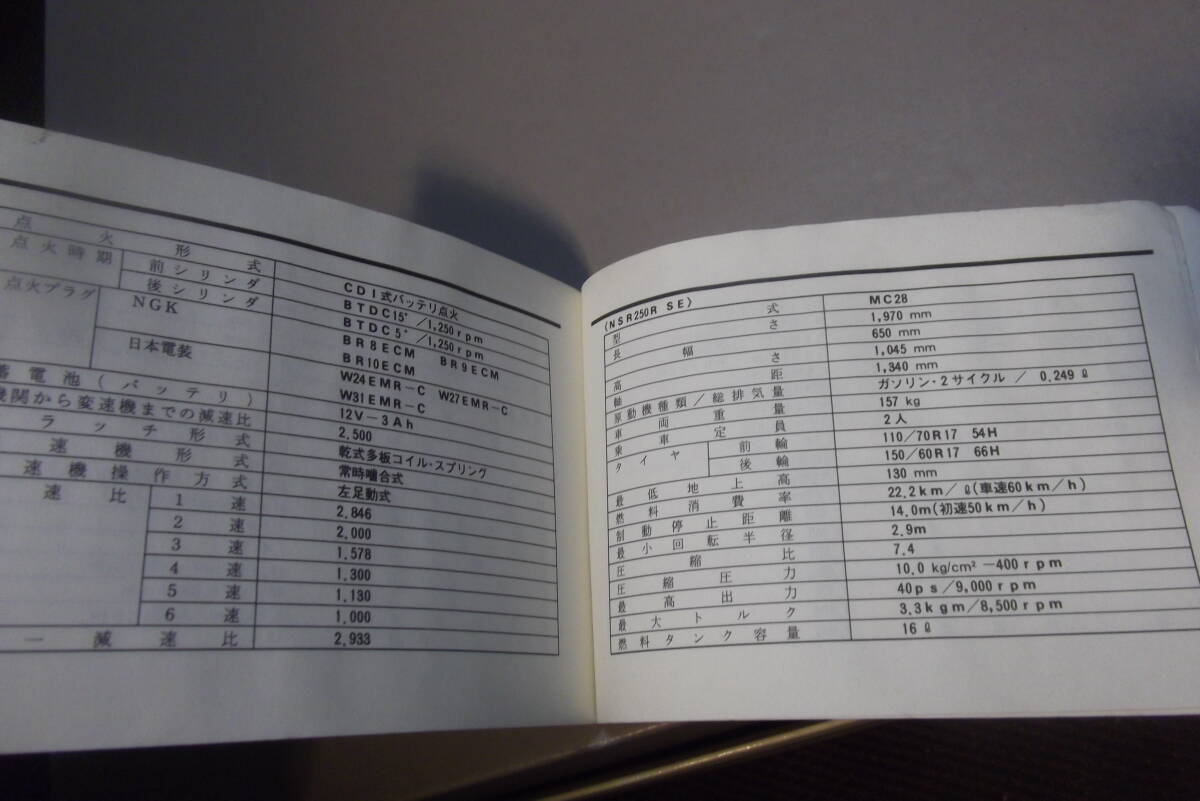 点火形式 CDI式バッテリ点火
点火時期 前シリンダ BTDC15°/1,250rpm
後シリンダ BTDC5°/1,250rpm
点火プラグ NGK BR8ECM BR9ECM
BR10ECM
日本電装 W24EMR-C W27EMR-C
W31EMR-C
蓄電池(バッテリ) 12V-3Ah
機関から変速機までの減速比 2.500
ラッチ形式 乾式多板コイル・スプリング
速機形式 常時噛合式
速機操作方式 左足動式
速比 1速 2.846
2速 2.000
3速 1.578
4速 1.300
5速 1.130
6速 1.000
一減速比 2.933
(NSR250R SE)
型式 MC28
長さ 1,970 mm
幅 650 mm
高さ 1,045 mm
軸距 1,340 mm
原動機種類/総排気量 ガソリン・2サイクル / 0.249ℓ
車両重量 157 kg
乗車定員 2人
タイヤ 前輪 110/70R17 54H
後輪 150/60R17 66H
最低地上高 130 mm
燃料消費率 22.2km/ℓ(車速60km/h)
制動停止距離 14.0m(初速50km/h)
最小回転半径 2.9m
圧縮比 7.4
圧縮圧力 10.0 kg/cm²-400rpm
最高出力 40ps/9,000rpm
最大トルク 3.3kgm/8,500rpm
燃料タンク容量 16ℓ